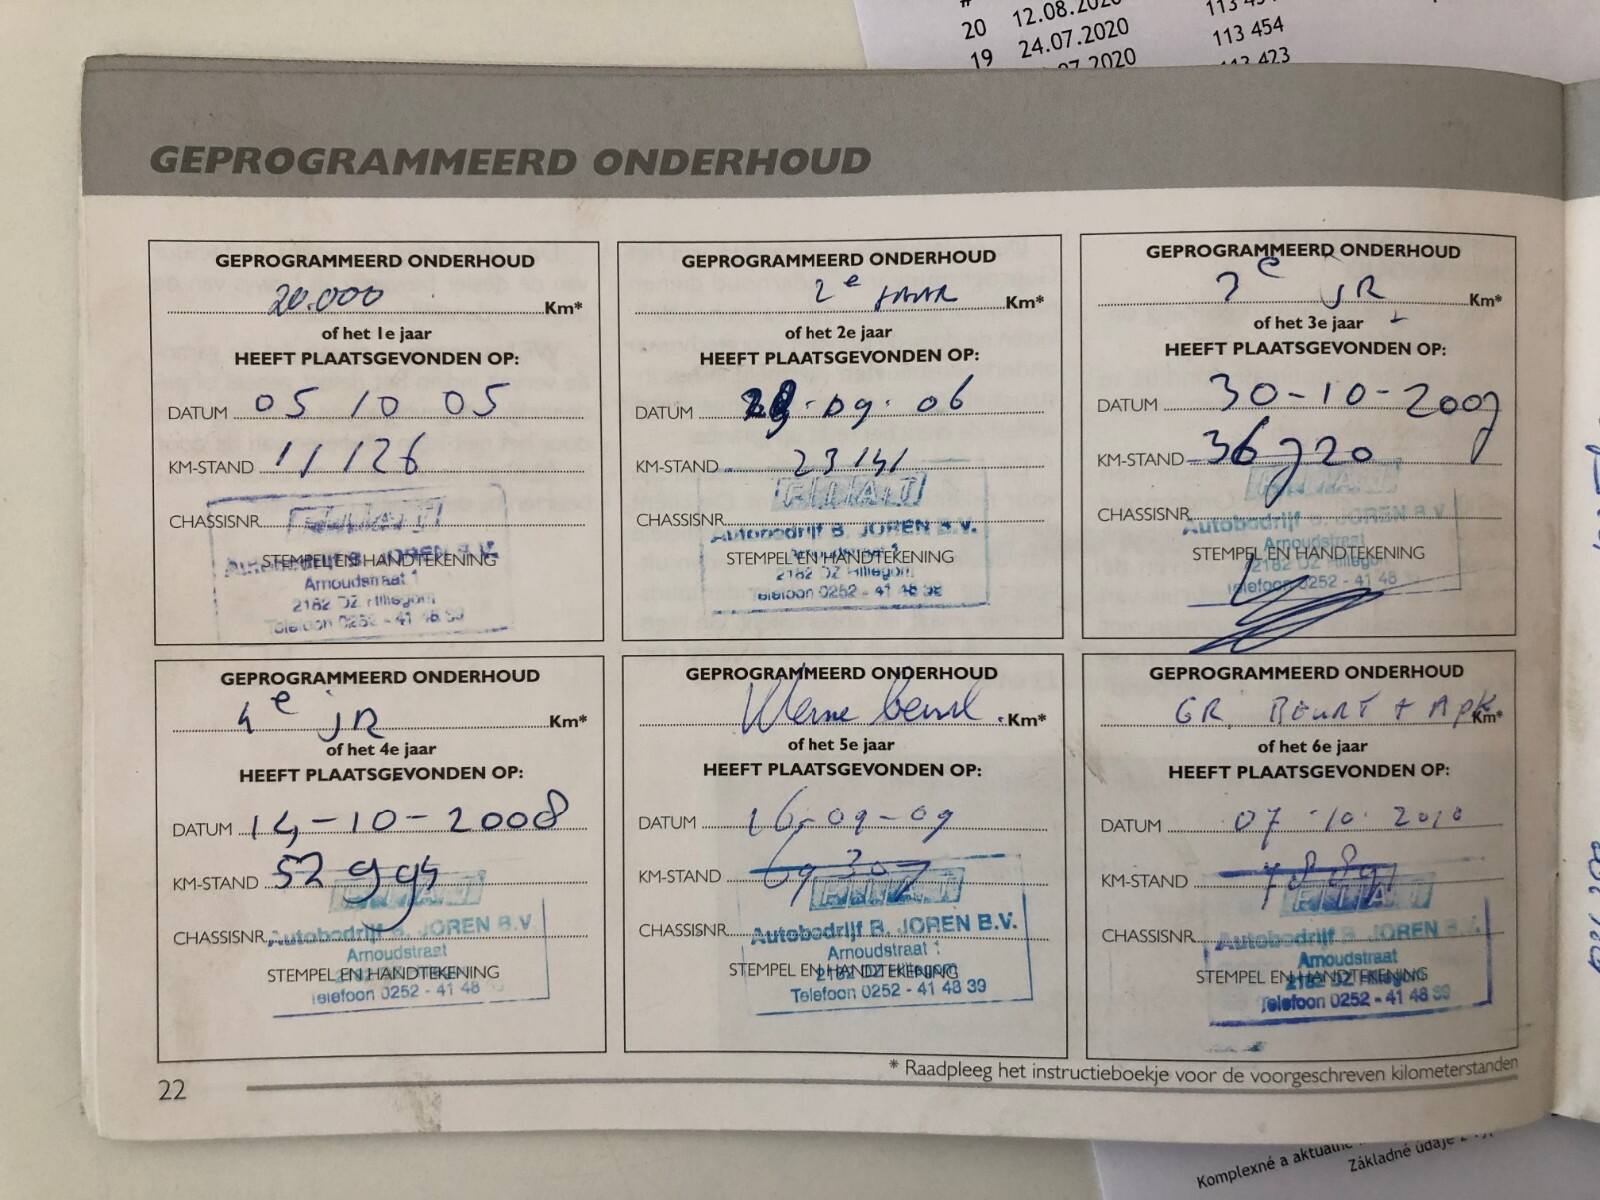 20 12.08.2020
19 24.07.2020 113 454
07.2020 113 423
GEPROGRAMMEERD ONDERHOUD
GEPROGRAMMEERD ONDERHOUD
20.000 Km*
of het 1e jaar
HEEFT PLAATSGEVONDEN OP:
DATUM 05 10 05
KM-STAND 11126
CHASSISNR.
FIAT
Autobedrijf B. JOREN B.V.
STEMPEL EN HANDTEKENING
Arnoudstraat 1
2182 DZ Hillegom
Telefoon 0252 - 41 48 39
GEPROGRAMMEERD ONDERHOUD
2e JAAR Km*
of het 2e jaar
HEEFT PLAATSGEVONDEN OP:
DATUM 09 · 06
KM-STAND 23141
FIAT
CHASSISNR.
Autobedrijf B. JOREN B.V.
STEMPEL EN HANDTEKENING
2182 DZ Hillegom
Telefoon 0252 - 41 48 39
GEPROGRAMMEERD ONDERHOUD
3e JR Km*
of het 3e jaar
HEEFT PLAATSGEVONDEN OP:
DATUM 30-10-2007
KM-STAND 36720
FIAT
CHASSISNR.
Autobedrijf B. JOREN B.V.
Arnoudstraat
STEMPEL EN HANDTEKENING
2182 DZ Hillegom
Telefoon 0252 - 41 48
GEPROGRAMMEERD ONDERHOUD
4e JR Km*
of het 4e jaar
HEEFT PLAATSGEVONDEN OP:
DATUM 14-10-2008
KM-STAND 52994
FIAT
CHASSISNR.
Autobedrijf B. JOREN B.V.
Arnoudstraat
STEMPEL EN HANDTEKENING
Telefoon 0252 - 41 48
GEPROGRAMMEERD ONDERHOUD
Kleine beurt. Km*
of het 5e jaar
HEEFT PLAATSGEVONDEN OP:
DATUM 16-09-09
KM-STAND 69307
FIAT
CHASSISNR.
Autobedrijf B. JOREN B.V.
Arnoudstraat 1
STEMPEL EN HANDTEKENING
2182 DZ Hillegom
Telefoon 0252 - 41 48 39
GEPROGRAMMEERD ONDERHOUD
GR BEURT + APK Km*
of het 6e jaar
HEEFT PLAATSGEVONDEN OP:
DATUM 07 · 10 · 2010
KM-STAND
FIAT
CHASSISNR.
Autobedrijf B. JOREN B.V.
Arnoudstraat
STEMPEL EN HANDTEKENING
2182 DZ Hillegom
Telefoon 0252 - 41 48 39
* Raadpleeg het instructieboekje voor de voorgeschreven kilometerstanden
22
Komplexné a aktuálne
Základné údaje z